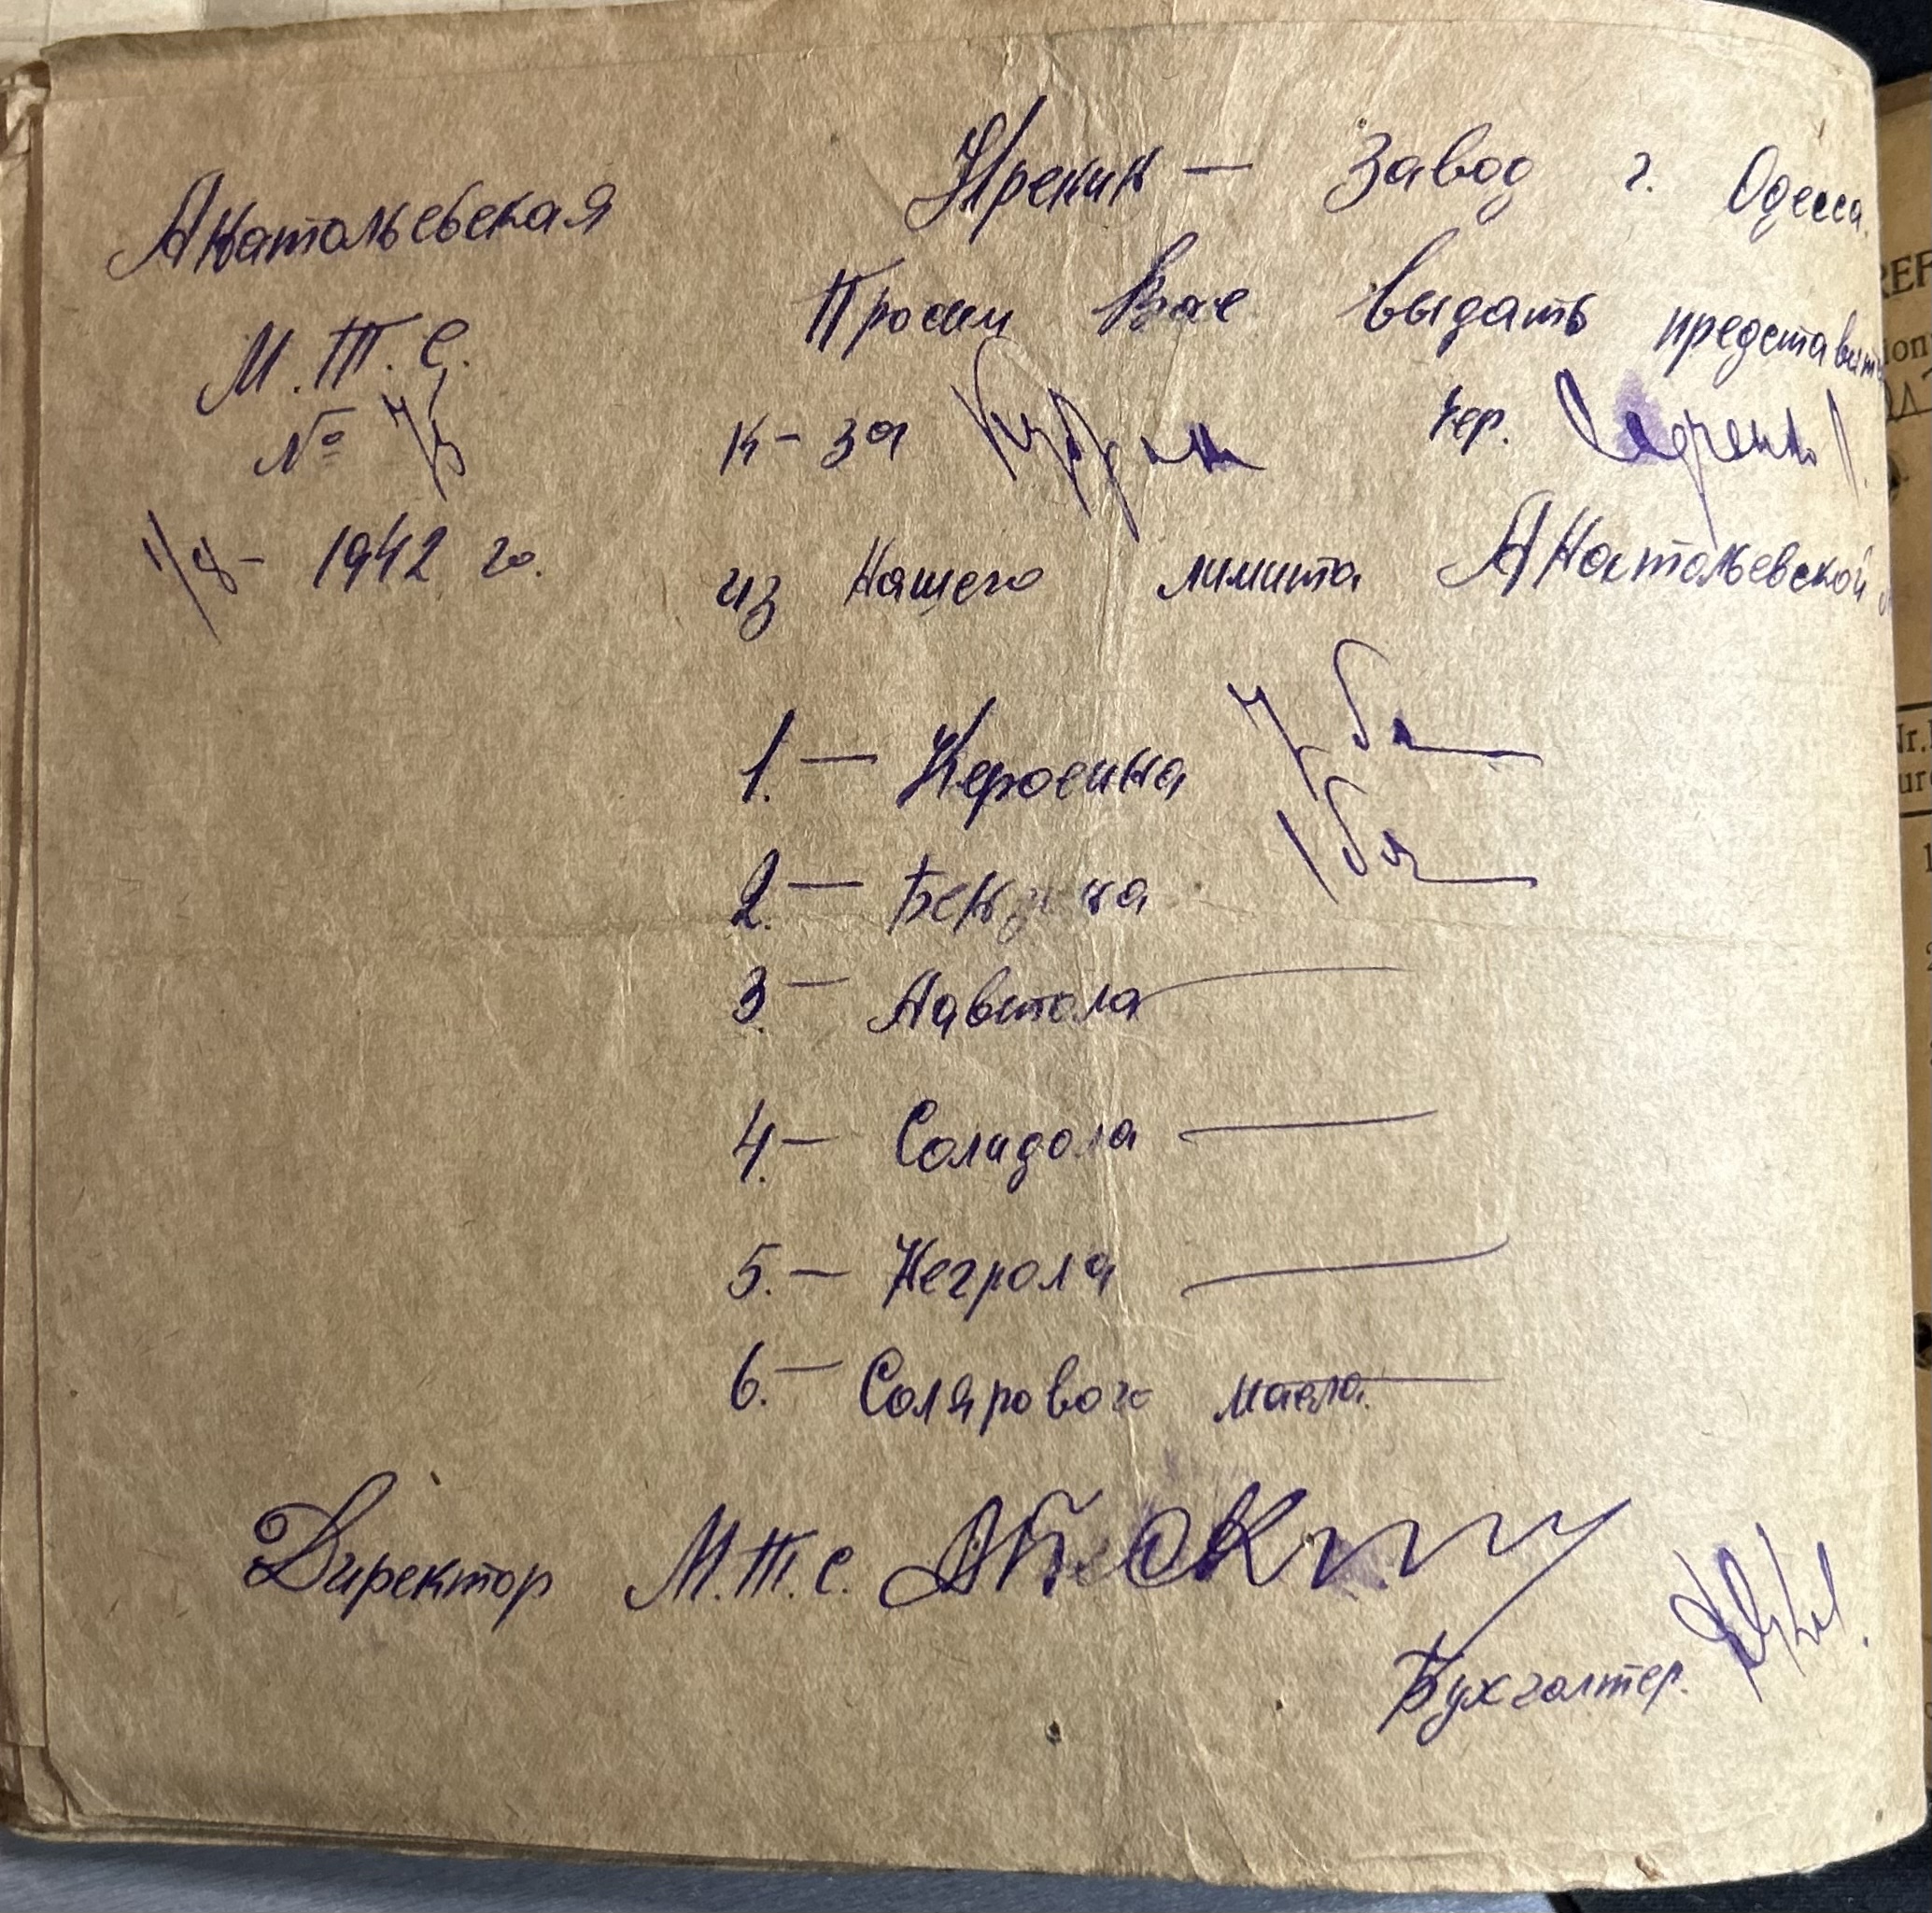 Анатольевская
М.Т.С.
№ 73
1/8 - 1942 го.
Крекик — Завод г. Одесса.
Просим Вас выдать представит
к-за чер.
из Нашего лимита Анатольевской
1. — Керосина 7 бк
2. — Бензина 1 бк
3. — Аавтола —
4. — Солидола —
5. — Негрола —
6. — Солярового масла. —
Директор М.Т.С.
Бухгалтер.
REF
ion
Nr.